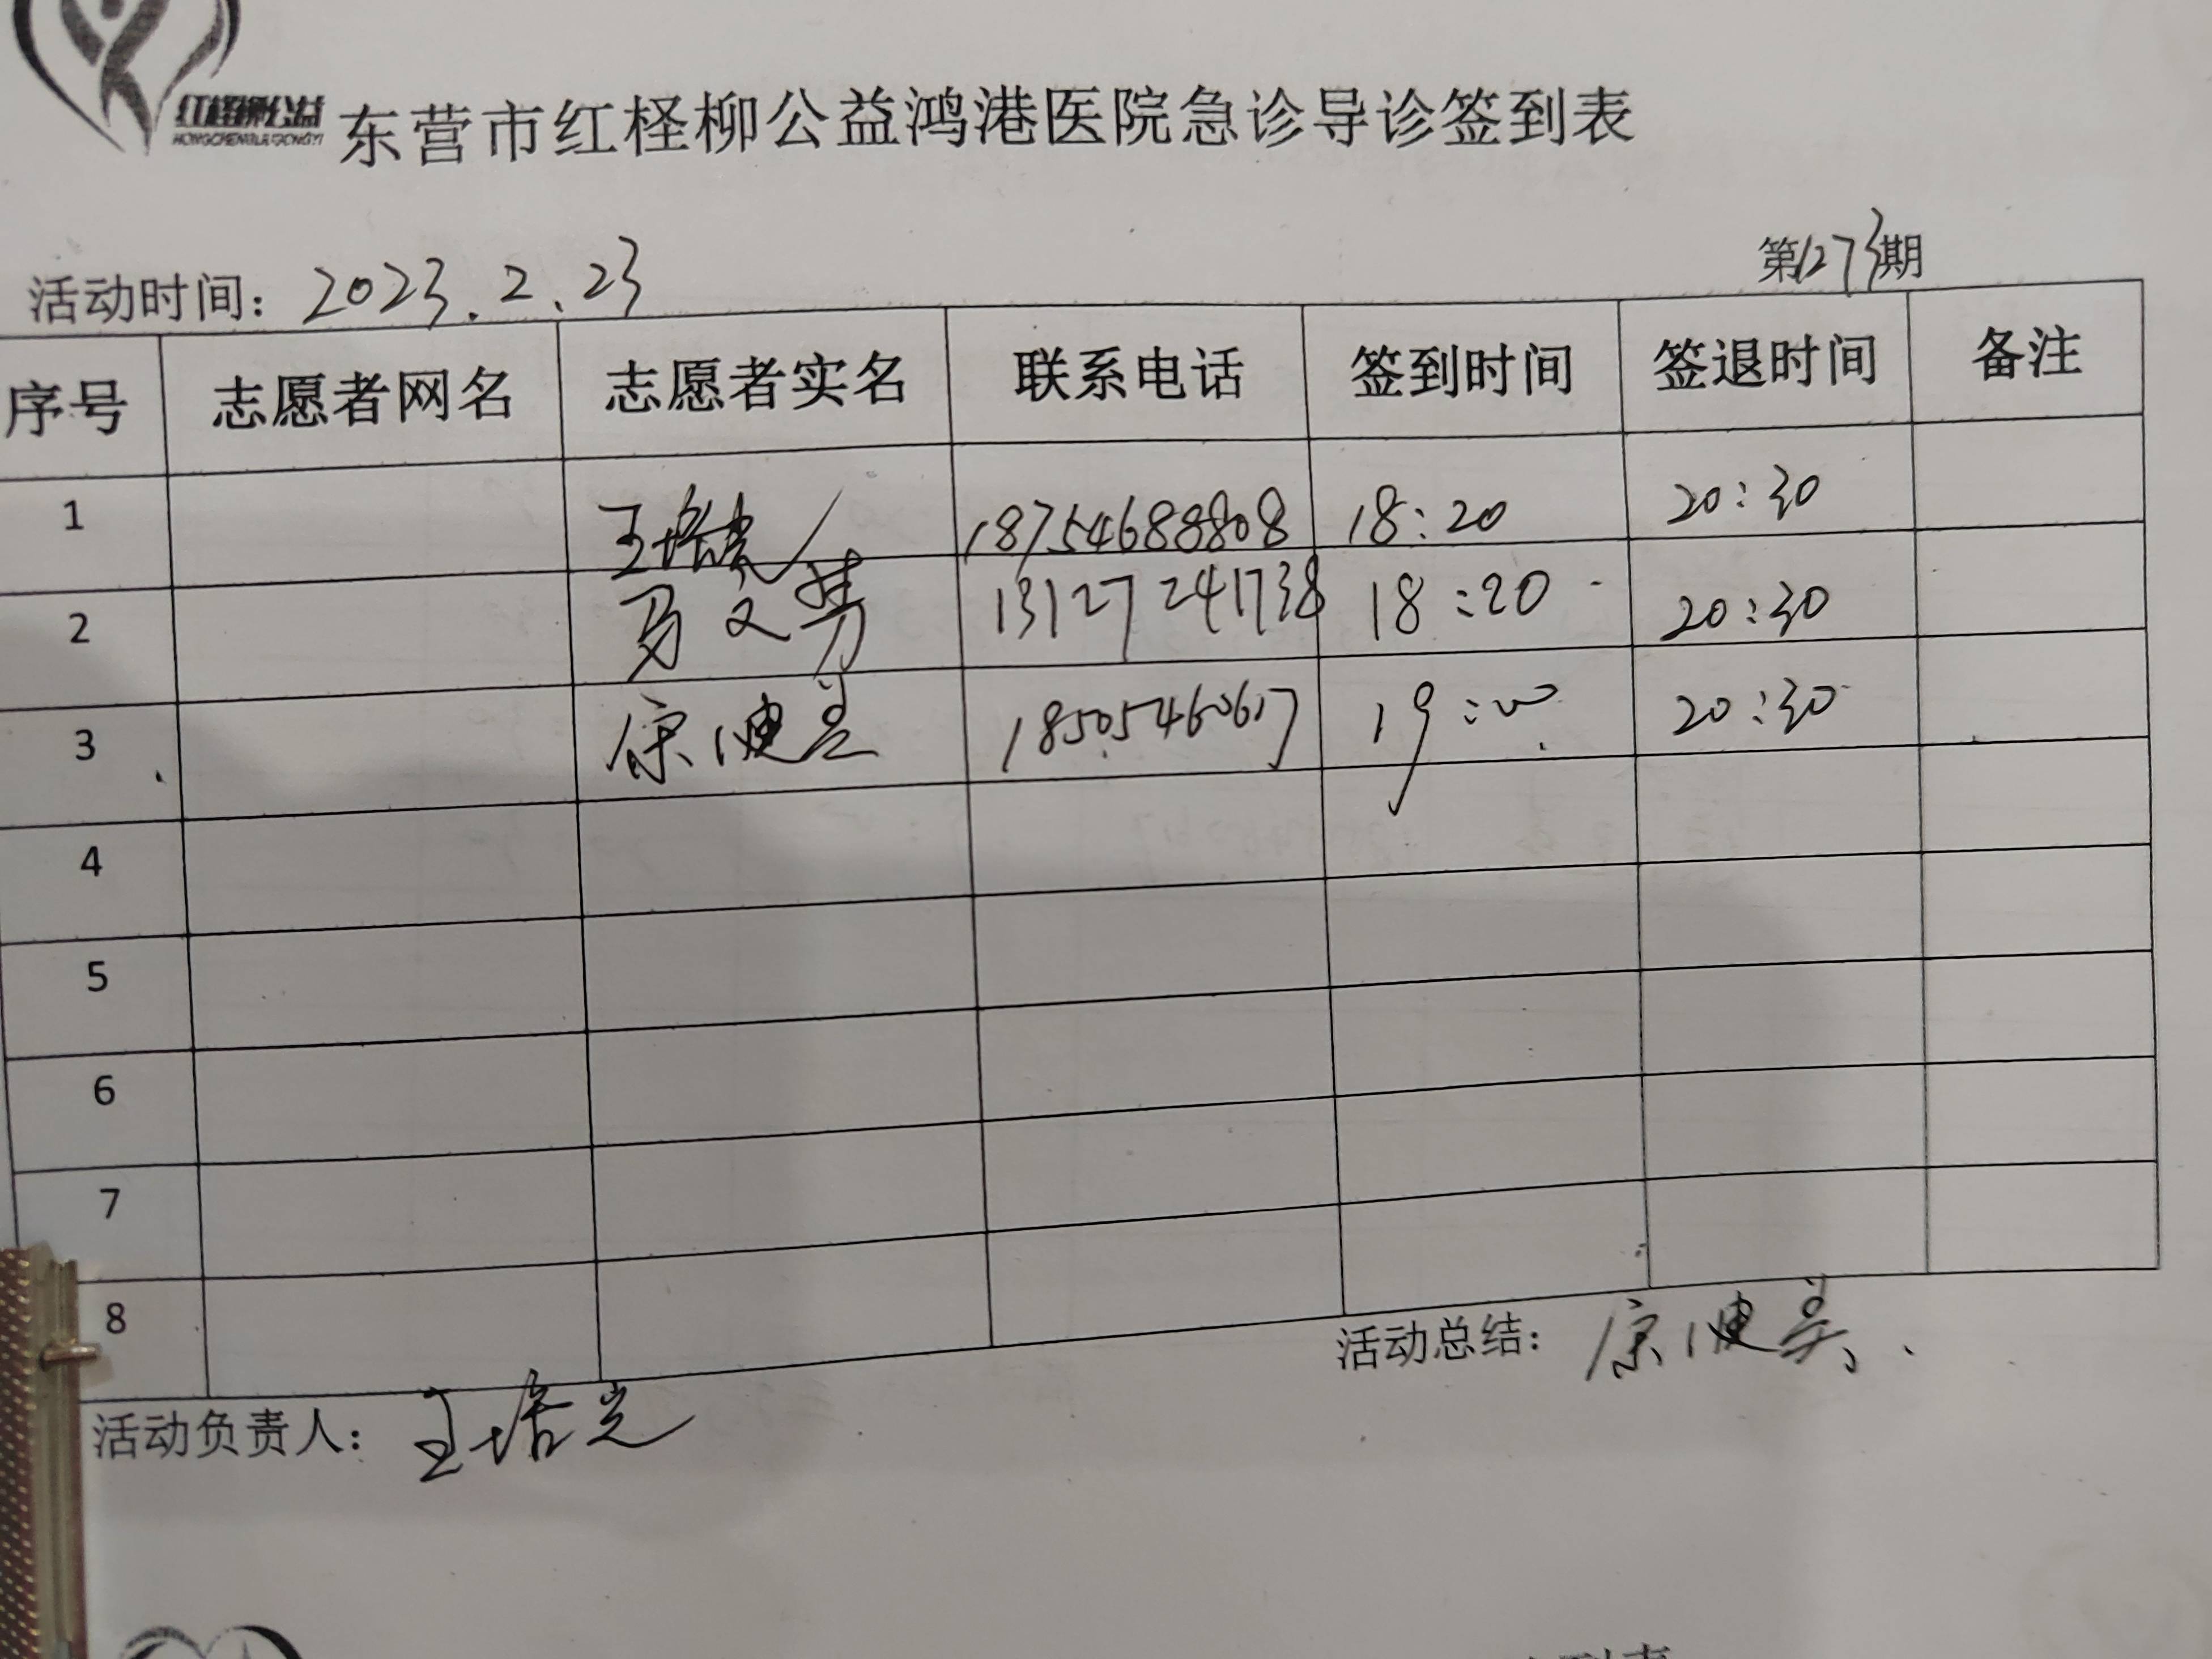 红柽柳公益
东营市红柽柳公益鸿港医院急诊导诊签到表
活动时间：2023.2.23 第1273期
序号 志愿者网名 志愿者实名 联系电话 签到时间 签退时间 备注
1 王 18754688808 18:20 20:30
2 马文 13127241738 18:20 20:30
3 康 18505460617 19:00 20:30
4
5
6
7
8
活动总结：康
活动负责人：王